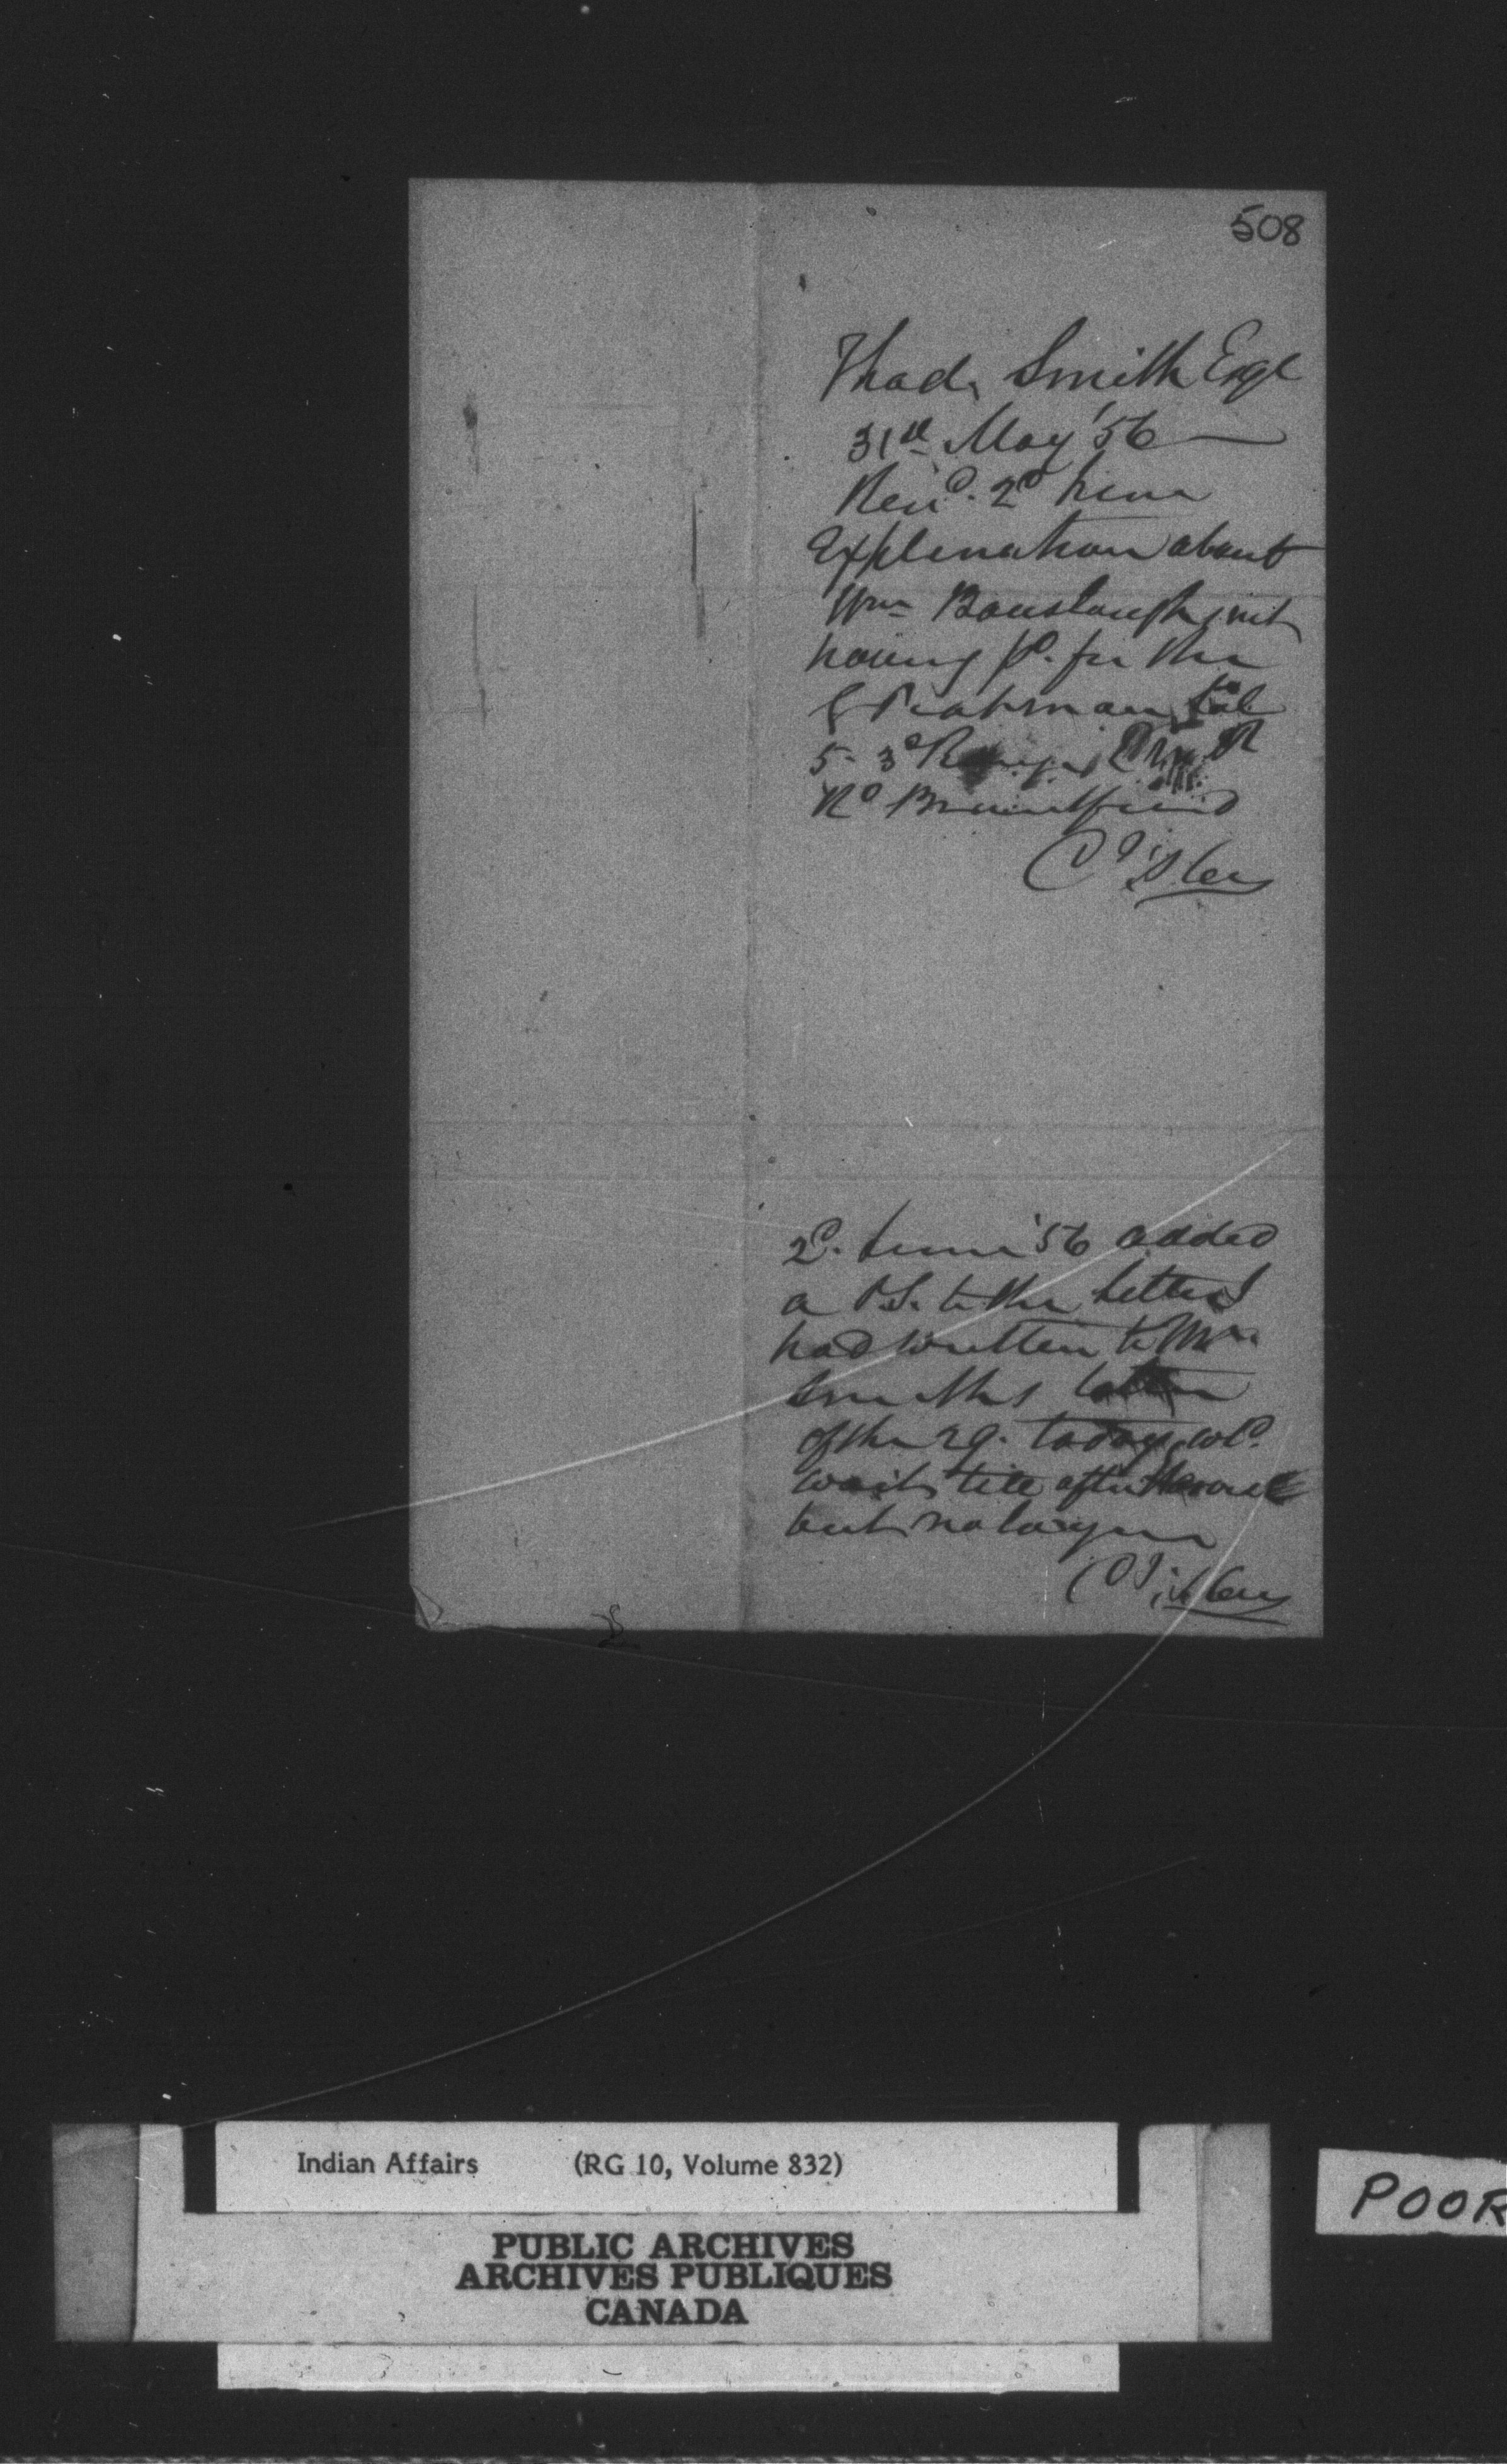 508
Thad. Smith Esqe
31st May '56
Recd. 2d June
Explanation about
Wm Bouslaugh not
having pd. for the
5 3d Range
No Brantford
2d. June '56 added
a P.S. to the letter I
had written to Mr.
Smiths letter
of the 29. today, wd.
wait till after
but no longer
Indian Affairs (RG 10, Volume 832)
PUBLIC ARCHIVES
ARCHIVES PUBLIQUES
CANADA
POOR